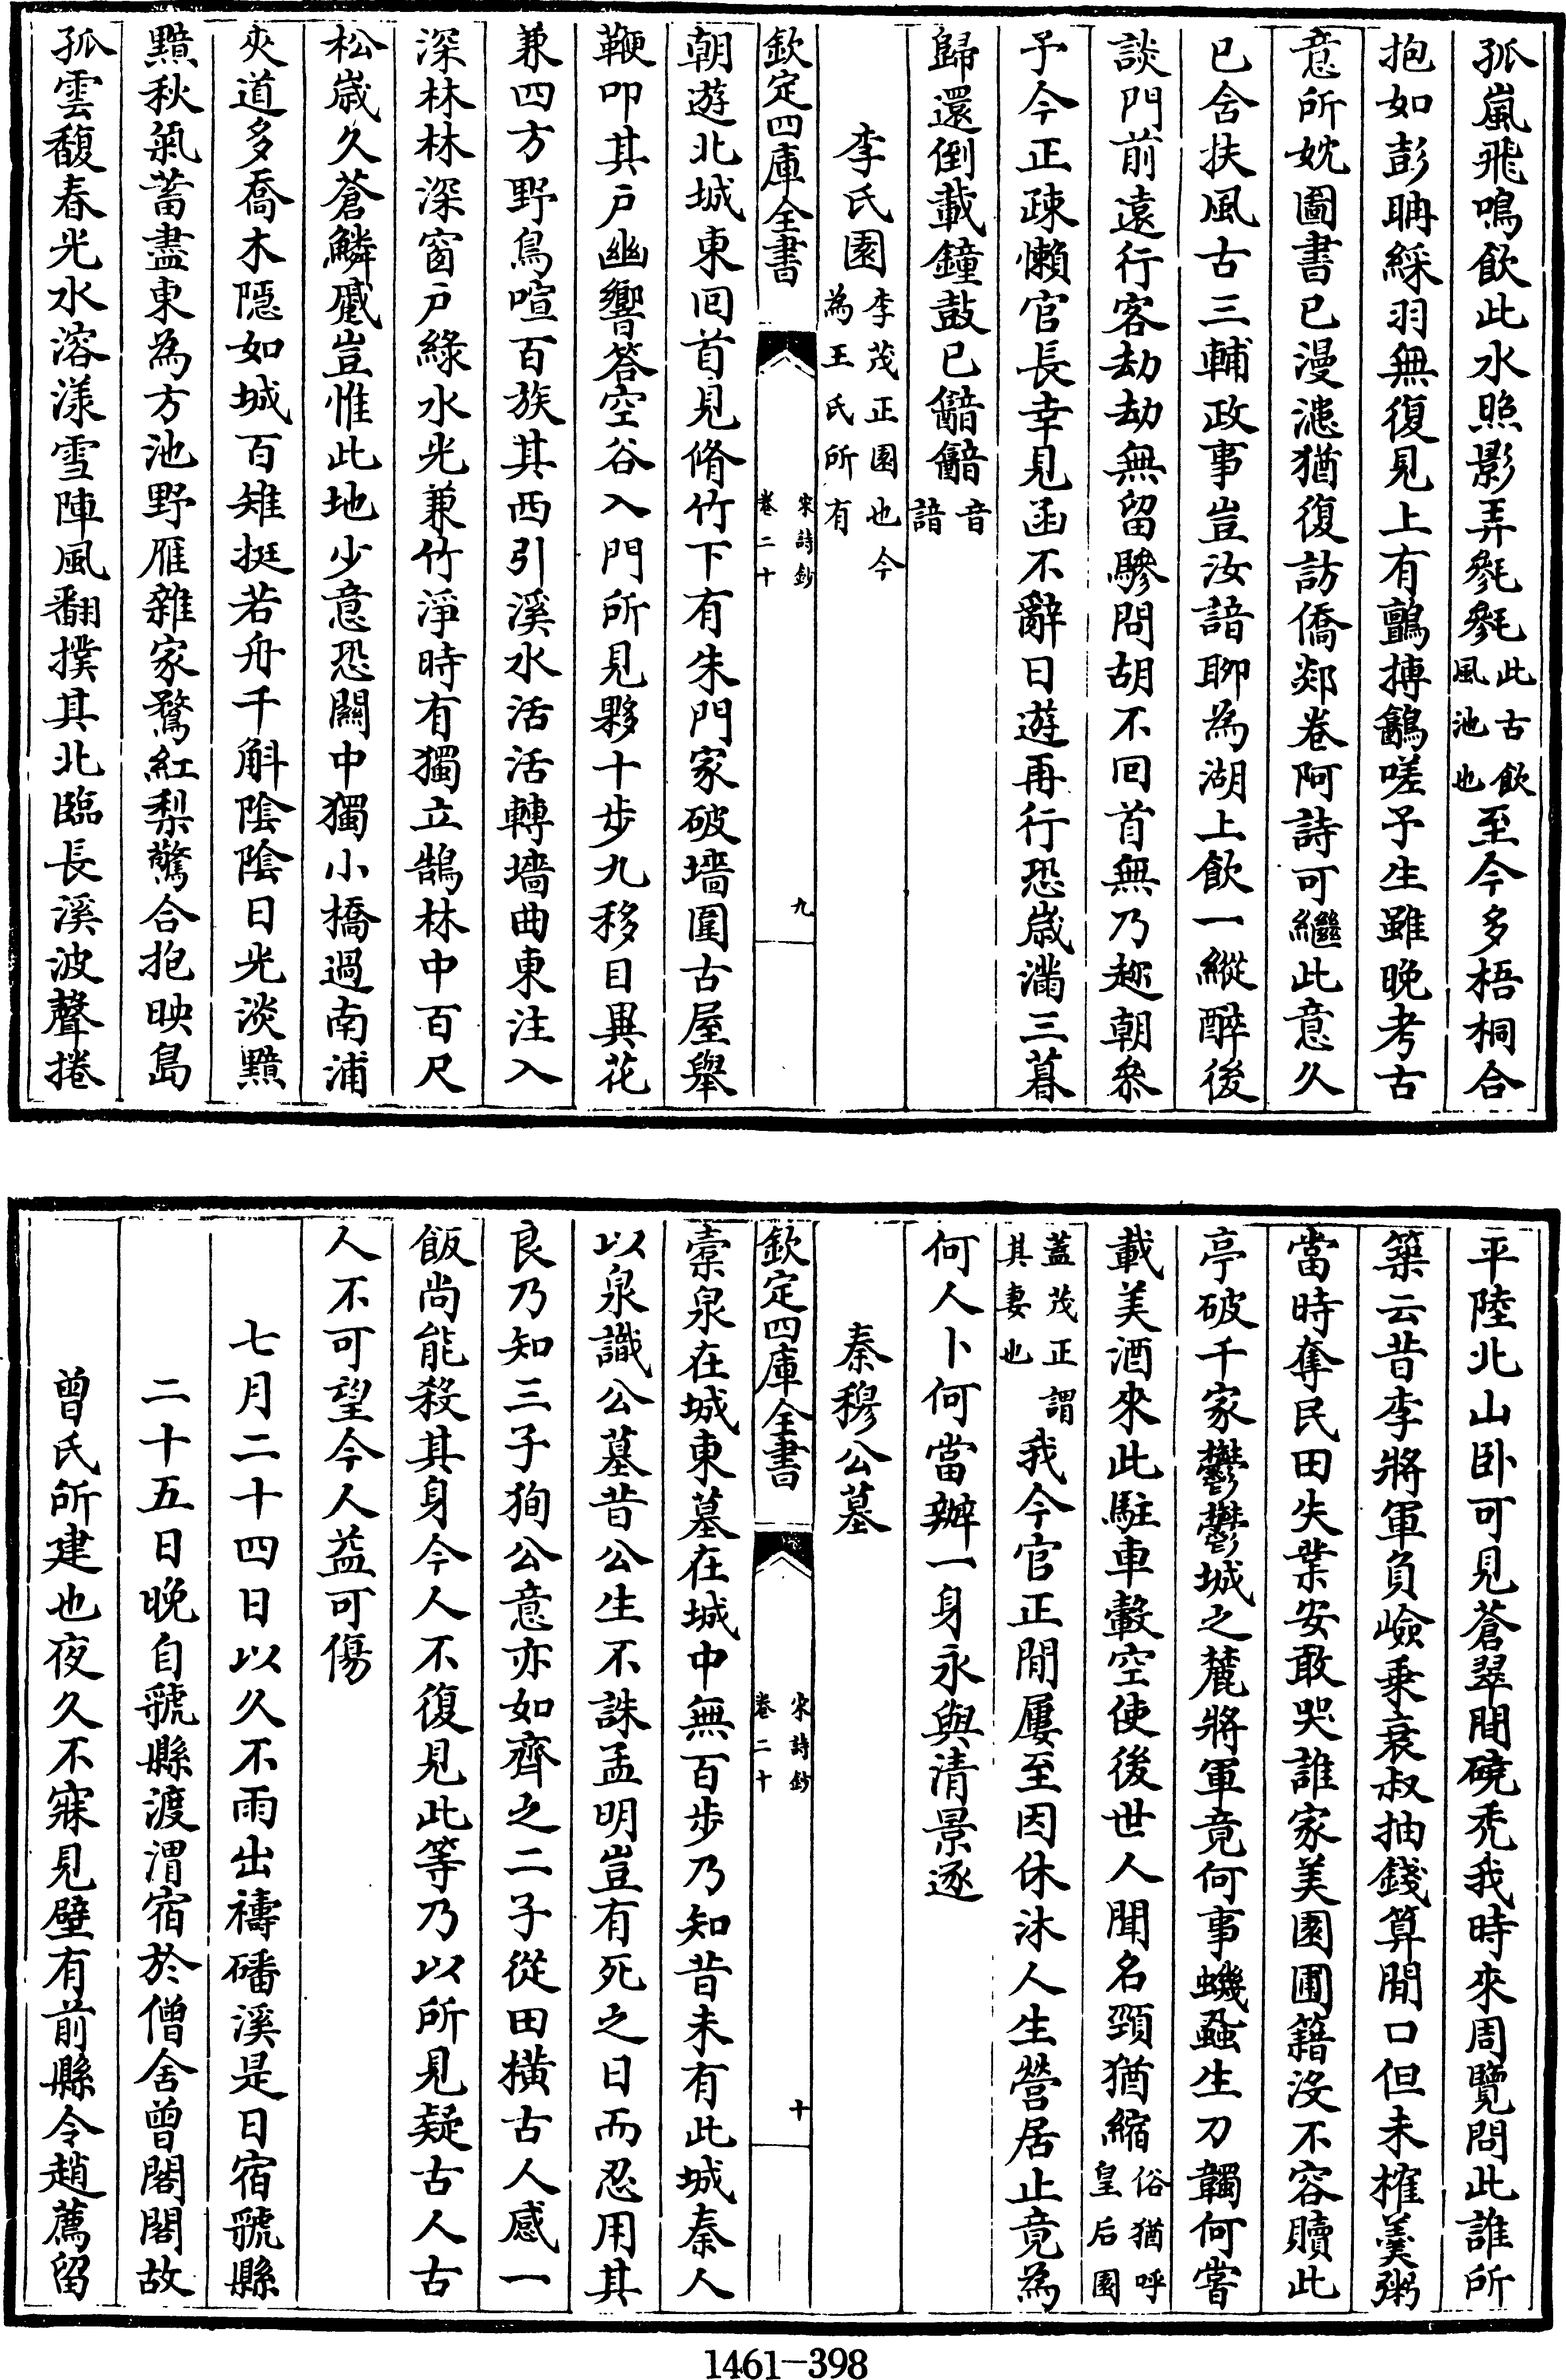 孤嵐飛鳴飲此水照影弄毿毿此古飲風池也至今多梧桐合
抱如彭聃綵羽無復見上有鸇搏䳺嗟予生雖晚考古
意所妉圖書已漫漶猶復訪僑郯卷阿詩可繼此意久
已含扶風古三輔政事豈汝諳聊為湖上飲一縱醉後
談門前遠行客劫劫無留驂問胡不回首無乃趂朝參
予今正疎懶官長幸見函不辭日遊再行恐歲滿三暮
歸還倒載鐘鼓已韽韽音諳
李氏園李茂正園也今為王氏所有
欽定四庫全書
宋詩鈔
卷二十
九
朝遊北城東回首見脩竹下有朱門家破墻圍古屋舉
鞭叩其戶幽響答空谷入門所見夥十步九移目異花
兼四方野鳥喧百族其西引溪水活活轉墻曲東注入
深林林深窗戶綠水光兼竹淨時有獨立鵠林中百尺
松歲久蒼鱗蹙豈惟此地少意恐關中獨小橋過南浦
夾道多喬木隱如城百雉挺若舟千斛陰陰日光淡黯
黯秋氣蓄盡東為方池野雁雜家鶩紅梨驚合抱映島
孤雲馥春光水溶漾雪陣風翻撲其北臨長溪波聲捲
平陸北山卧可見蒼翠間磽秃我時來周覽問此誰所
築云昔李將軍負嶮乗衰叔抽錢算間口但未榷羹粥
當時奪民田失業安敢哭誰家美園圃籍沒不容贖此
亭破千家鬱鬱城之麓將軍竟何事蟣蝨生刀韣何嘗
載美酒來此駐車轂空使後世人聞名頸猶縮俗猶呼皇后園
蓋茂正謂其妻也我今官正閒屢至因休沐人生營居止竟為
何人卜何當辦一身永與清景逐
秦穆公墓
欽定四庫全書
宋詩鈔
卷二十
十
橐泉在城東墓在城中無百步乃知昔未有此城秦人
以泉識公墓昔公生不誅孟明豈有死之日而忍用其
良乃知三子狥公意亦如齊之二子從田横古人感一
飯尚能殺其身今人不復見此等乃以所見疑古人古
人不可望今人益可傷
七月二十四日以久不雨出禱磻溪是日宿虢縣
二十五日晚自虢縣渡渭宿於僧舍曾閣閣故
曾氏所建也夜久不寐見壁有前縣令趙薦留
1461-398